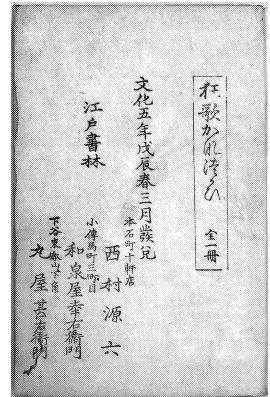 狂歌かな 全一冊
文化五年戊辰春三月發兌
江戸書林
本石町十軒店
西村源六
小傳馬町三町目
和泉屋幸右衛門
下谷
丸屋甚右衛門